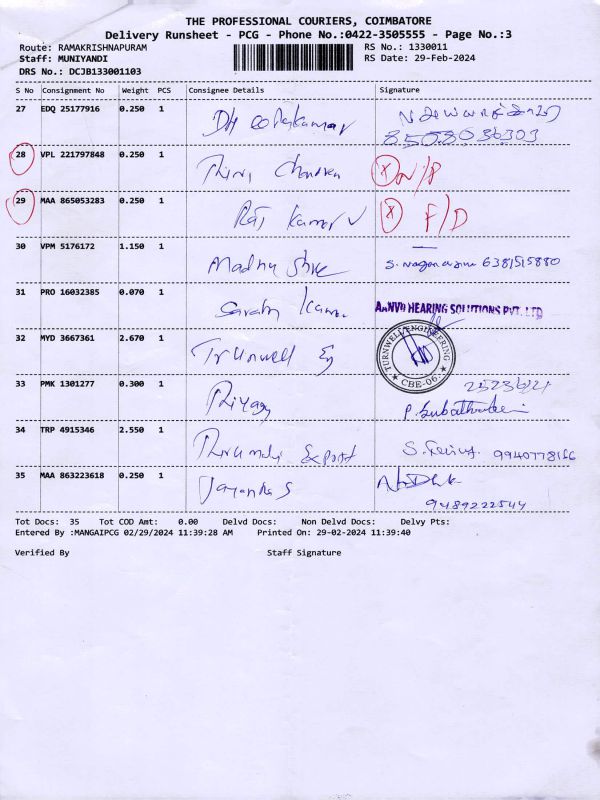 THE PROFESSIONAL COURIERS, COIMBATORE
Delivery Runsheet - PCG - Phone No.:0422-3505555 - Page No.:3
Route: RAMAKRISHNAPURAM RS No.: 1330011
Staff: MUNIYANDI RS Date: 29-Feb-2024
DRS No.: DCJB133001103
S No Consignment No Weight PCS Consignee Details Signature
27 EDQ 25177916 0.250 1
8508036303
28 VPL 221797848 0.250 1
29 MAA 865053283 0.250 1 Raj Kumar V F/D
30 VPM 5176172 1.150 1 Madhu Shree 6381515880
31 PRO 16032385 0.070 1 HEARING SOLUTIONS PVT. LTD
32 MYD 3667361 2.670 1 TURNWELL ENGINEERING
CBE-06.
33 PMK 1301277 0.300 1 Priyaa
34 TRP 4915346 2.550 1 Export
35 MAA 863223618 0.250 1 Jayanthi S
9489222544
Tot Docs: 35 Tot COD Amt: 0.00 Delvd Docs: Non Delvd Docs: Delvy Pts:
Entered By :MANGAIPCG 02/29/2024 11:39:28 AM Printed On: 29-02-2024 11:39:40
Verified By Staff Signature